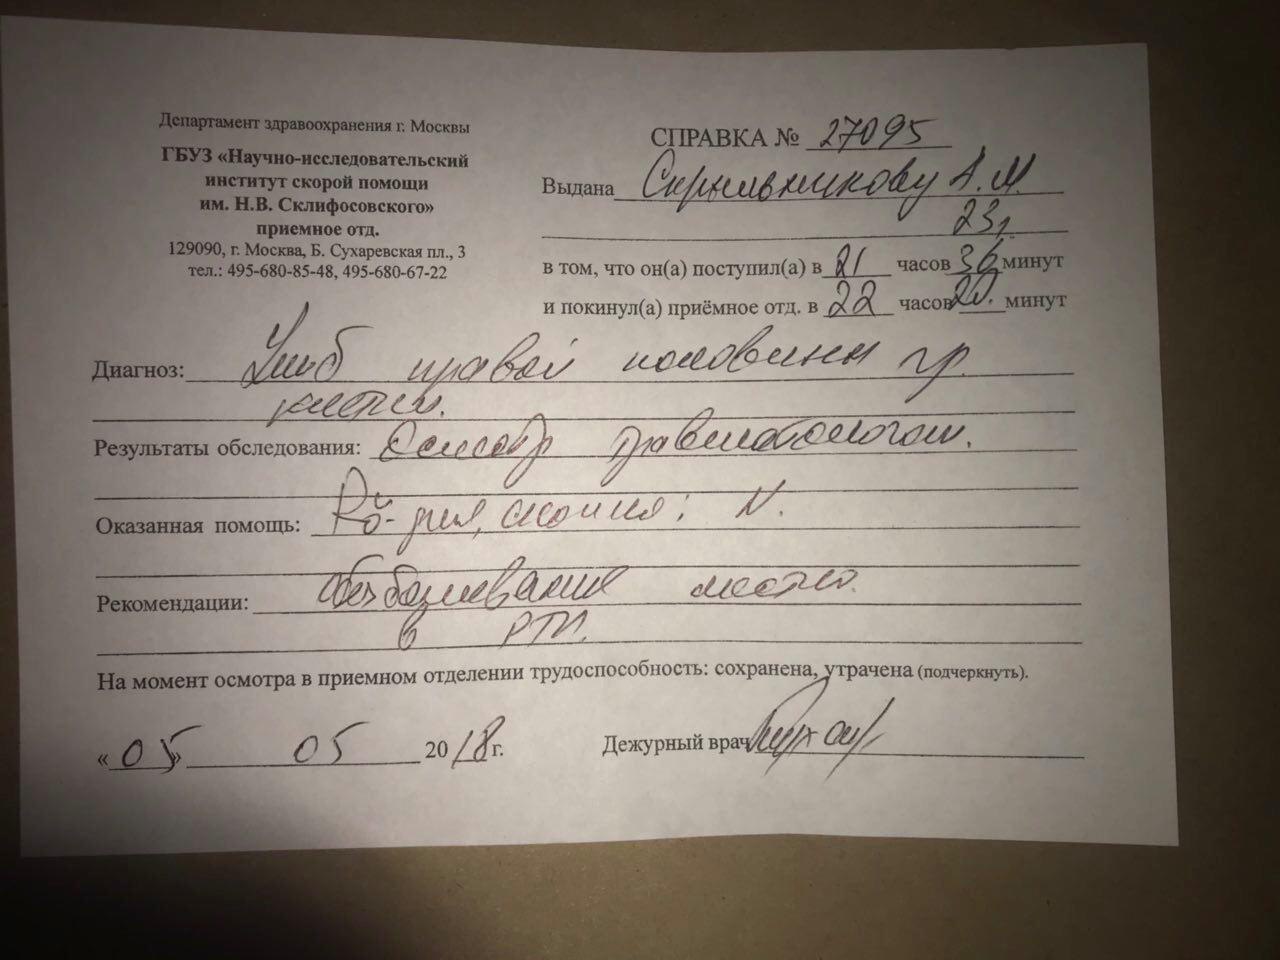 Департамент здравоохранения г. Москвы
ГБУЗ «Научно-исследовательский
институт скорой помощи
им. Н.В. Склифосовского»
приемное отд.
129090, г. Москва, Б. Сухаревская пл., 3
тел.: 495-680-85-48, 495-680-67-22
СПРАВКА № 27095
Выдана Скрыльникову А.М.
23г.
в том, что он(а) поступил(а) в 21 часов 36 минут
и покинул(а) приёмное отд. в 22 часов 20. минут
Диагноз: Ушиб правой половины гр.
клетки.
Результаты обследования: Осмотр травматологом.
Оказанная помощь: N.
Рекомендации: обезболивание местно.
в РТП.
На момент осмотра в приемном отделении трудоспособность: сохранена, утрачена (подчеркнуть).
«05» 05 2018г.
Дежурный врач